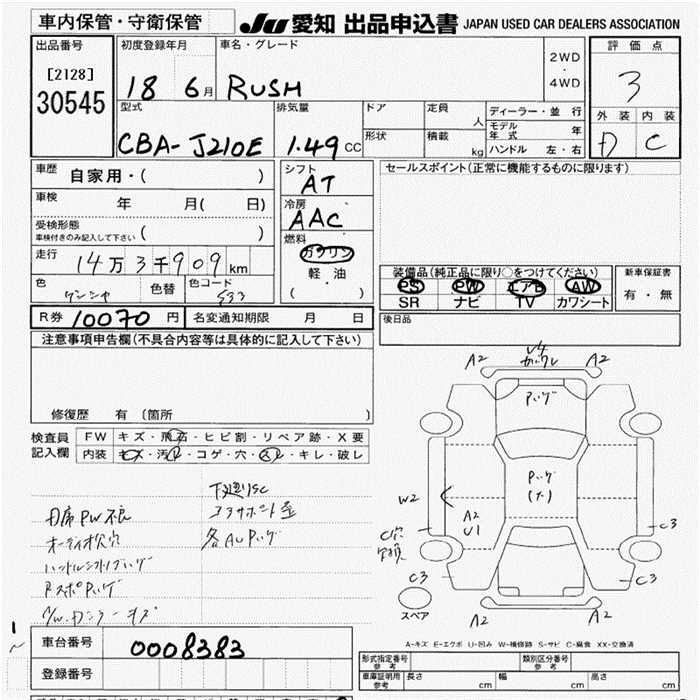 車内保管・守衛保管
JU 愛知 出品申込書 JAPAN USED CAR DEALERS ASSOCIATION
出品番号
[2128]
30545
初度登録年月
18 6月
車名・グレード
RUSH
2WD
・
4WD
評価点
3
外装 内装
D C
型式
CBA-J210E
排気量
1.49 CC
ドア
形状
定員
人
積載
kg
ディーラー・並行
モデル年式 年
ハンドル 左・右
車歴
自家用・( )
車検
年 月( 日)
受検形態
車検付きのみ記入して下さい ( )
走行
14万3千909km
色
色替
色コード
S33
シフト
AT
冷房
AAC
燃料
ガソリン
軽油
( )
セールスポイント(正常に機能するものに限ります)
装備品(純正品に限り○をつけてください)
PS PW エアB AW
SR ナビ TV カワシート
新車保証書
有・無
R券 10070 円
名変通知期限 月 日
後日品
注意事項申告欄(不具合内容等は具体的に記入して下さい)
修復歴 有 (箇所 )
検査員
記入欄
FW キズ・飛石・ヒビ割・リペア跡・X要
内装 キズ・汚レ・コゲ・穴・スレ・キレ・破レ
下廻りSC
コアサポート歪
D席PW不良
オーディオ欠穴
A2
A2
W2
A2
U1
C穴
C3
C3
C3
A2
A2
スペア
A-キズ E-エクボ U-凹み W-補修跡 S-サビ C-腐食 XX-交換済
車台番号
0008383
登録番号
形式指定番号
参考
類別区分番号
参考
車庫証明用
参考
長さ cm 幅 cm 高さ cm